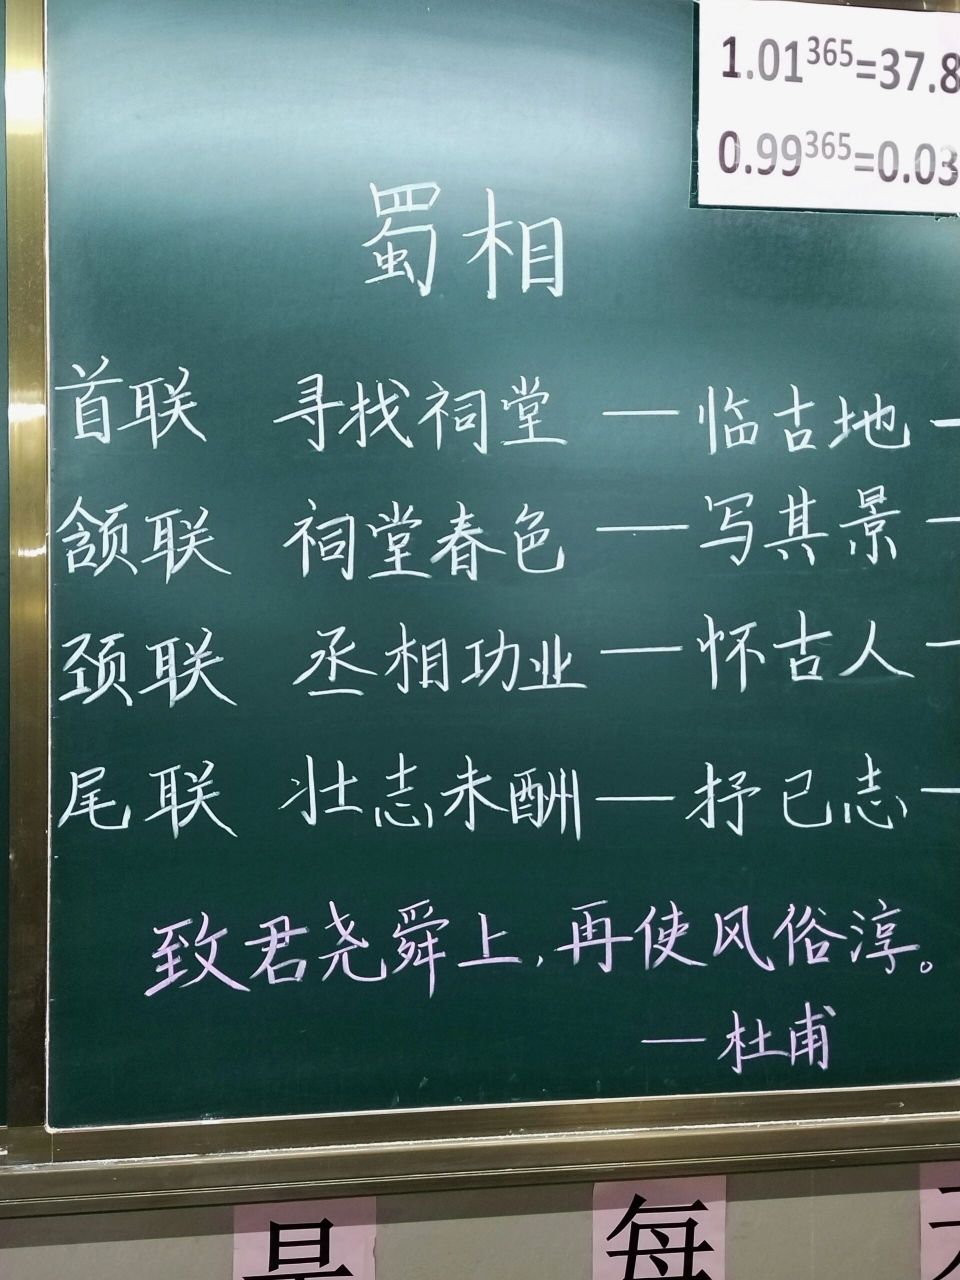 1.01³⁶⁵=37.8
0.99³⁶⁵=0.03
蜀相
首联 寻找祠堂 — 临古地 —
颔联 祠堂春色 — 写其景 —
颈联 丞相功业 — 怀古人 —
尾联 壮志未酬 — 抒已志 —
致君尧舜上，再使风俗淳。
— 杜甫
是 每